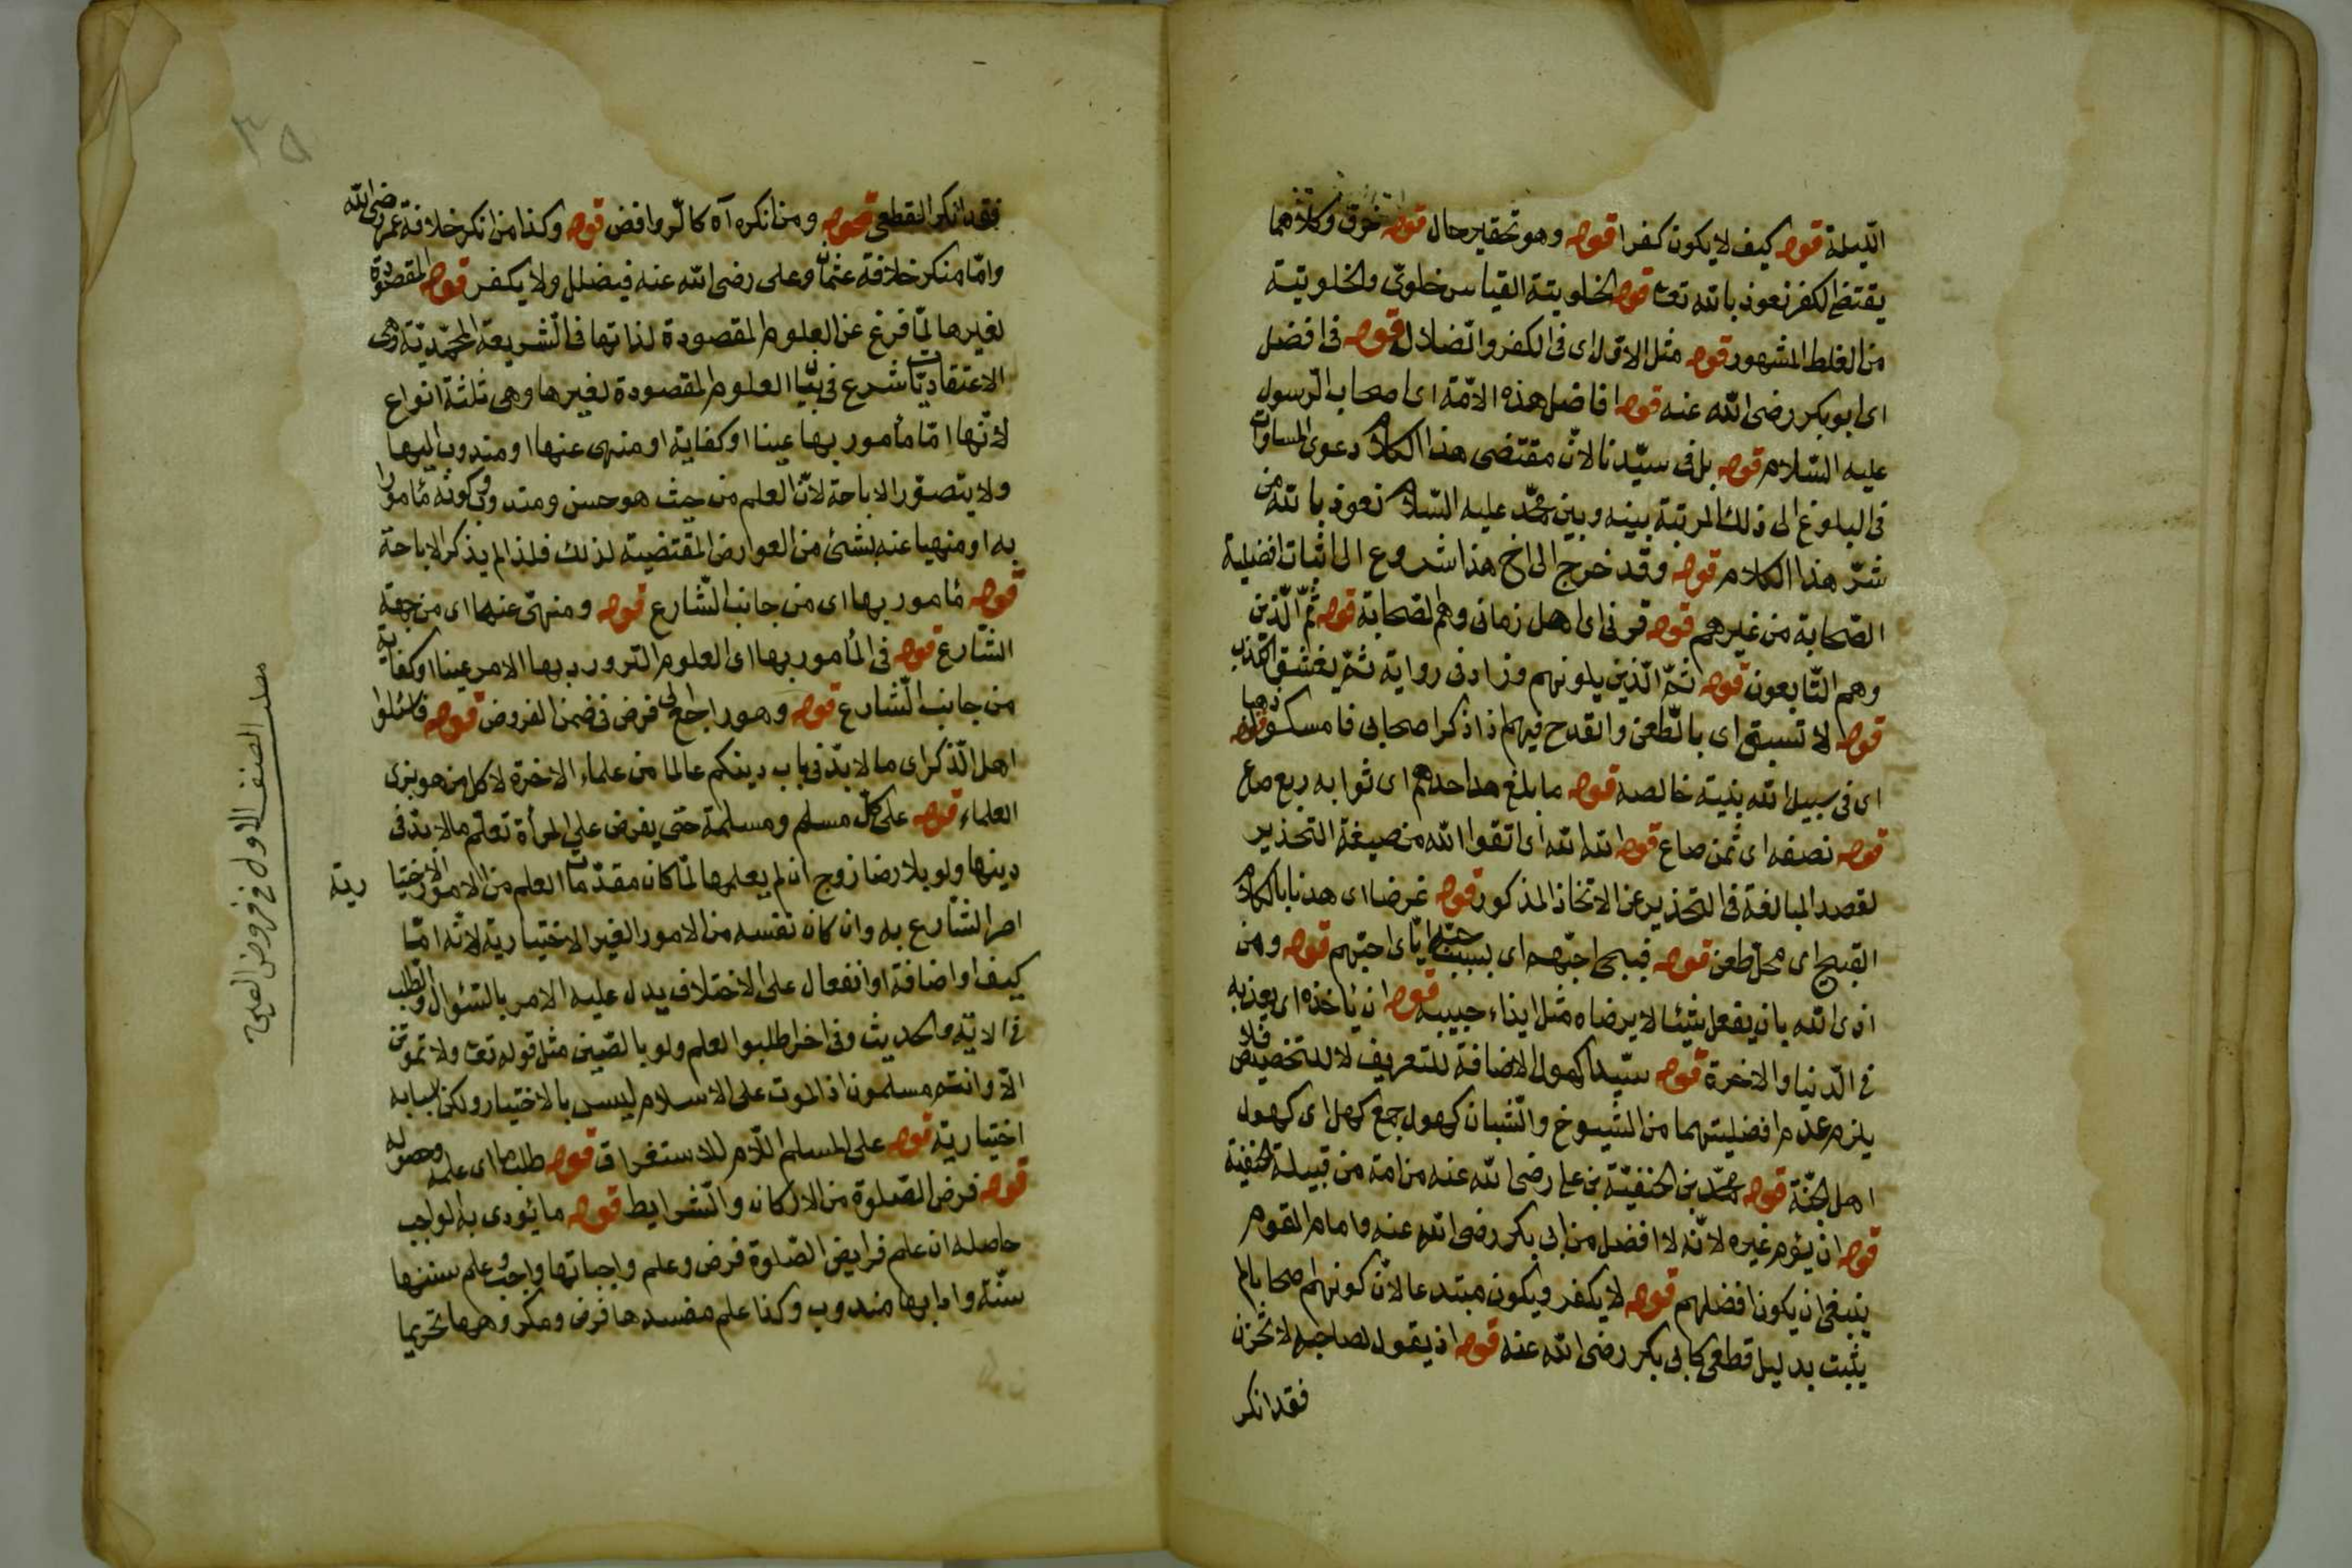 الليلة قوله كيف لا يكون كفرا قوله وهو تحقير حال قوله خرق وكلاهما
يقتضى الكفر نعوذ بالله تعا قوله الخلويتية القياس خلوتى والخلويتية
من الغلط المشهور قوله مثل الاول اى فى الكفر والضلال قوله فى افضل
اى ابو بكر رضى الله عنه قوله افاضل هذه الامة اى اصحاب الرسول
عليه السلام قوله بل فى سيدنا لان مقتضى هذا الكلام دعوى المساوات
فى البلوغ الى ذلك المرتبة بينه وبين محمد عليه السلام نعوذ بالله من
شر هذا الكلام قوله وقد خرج الى اخ هذا شروع الى اثبات افضلية
الصحابة من غيرهم قوله قرنى اى اهل زمانى وهم الصحابة قوله ثم الذين
وهم التابعون قوله ثم الذين يلونهم وزاد فى رواية ثم يفشو الكذب
قوله لا تسبوا اى بالطعن والقدح فيهم اذا ذكر اصحابى فامسكوا قوله ذهبا
اى فى سبيل الله بنية خالصة قوله ما بلغ مد احدهم اى ثوابه ربع صاع
قوله نصفه اى ثمن صاع قوله الله الله اى اتقوا الله من صيغة التحذير
لقصد المبالغة فى التحذير عن الاتخاذ المذكور قوله غرضا اى هدفا بالكلام
القبيح اى محل طعن قوله فبحبى احبهم اى بسبب حبه اياى احبهم قوله ومن
اذى الله بان يفعل شيئا لا يرضاه مثل ايذاء حبيبه قوله ان ياخذه اى يعذبه
فى الدنيا والاخرة قوله سيدا كهول الاضافة للتعريف لا للتخصيص فلا
يلزم عدم افضليتهما من الشيوخ والشبان كهول جمع كهل اى كهول
اهل الجنة قوله محمد بن الحنفية بن على رضى الله عنه من امة من قبيلة الحنفية
قوله ان يؤم غيره لانه لا افضل من ابى بكر رضى الله عنه وامام القوم
ينبغى ان يكون افضلهم قوله لا يكفر ويكون مبتدعا لان كونهم صحابا لم
يثبت بدليل قطعى كابى بكر رضى الله عنه قوله اذ يقول لصاحبه لا تحزن
فقد انكر
فقد انكر القطعى قوله ومن انكره آه كالروافض قوله وكذا من انكر خلافة عمر رضى الله
واما منكر خلافة عثمان وعلى رضى الله عنه فيضلل ولا يكفر قوله المقصودة
لغيرها لما فرغ عن العلوم المقصودة لذاتها فى الشريعة المحمدية وهى
الاعتقاديات شرع فى بيان العلوم المقصودة لغيرها وهى ثلثة انواع
لانها اما مأمور بها عينا او كفاية او منهى عنها او مندوب اليها
ولا يتصور الاباحة لان العلم من حيث هو حسن ومندوب وكونه مأمورا
به او منهيا عنه بشئ من العوارض المقتضية لذلك فلذا لم يذكر الاباحة
قوله مأمور بها اى من جانب الشارع قوله ومنهى عنها اى من جهة
الشارع قوله فى المأمور بها اى العلوم التى ورد بها الامر عينا او كفاية
من جانب الشارع قوله وهو راجع الى فرض فى ضمن الفروض قوله فاسئلوا
اهل الذكر اى ما لا بد فى باب دينكم عالما من علماء الاخرة لا كل من هو بزى
العلماء قوله على كل مسلم ومسلمة حتى يفرض على المرأة تعلم ما لا بد فى
دينها ولو بلا رضا زوج ان لم يعلمها لما كان مقدمات العلم من الامور الاختيا رية
امر الشارع به وان كان نفسه من الامور الغير الاختيارية لانه اما
كيف او اضافة او انفعال على الاختلاف يدل عليه الامر بالسئوال والطلب
فى الاية والحديث وفى اخر اطلبوا العلم ولو بالصين مثل قوله تعا ولا تموتن
الا وانتم مسلمون اذ الموت على الاسلام ليس بالاختيار ولكن اسبابه
اختيارية قوله على المسلم اللام للاستغراق قوله طلب ما اى علمه وحصوله
قوله فرض الصلوة من الاركان والشرايط قوله ما يؤدى به الواجب
حاصله ان علم فرايض الصلوة فرض وعلم واجباتها واجب وعلم سننها
سنة وادابها مندوب وكذا علم مفسدها فرض ومكروهها تحريما
الصنف الاول فى فروض العين